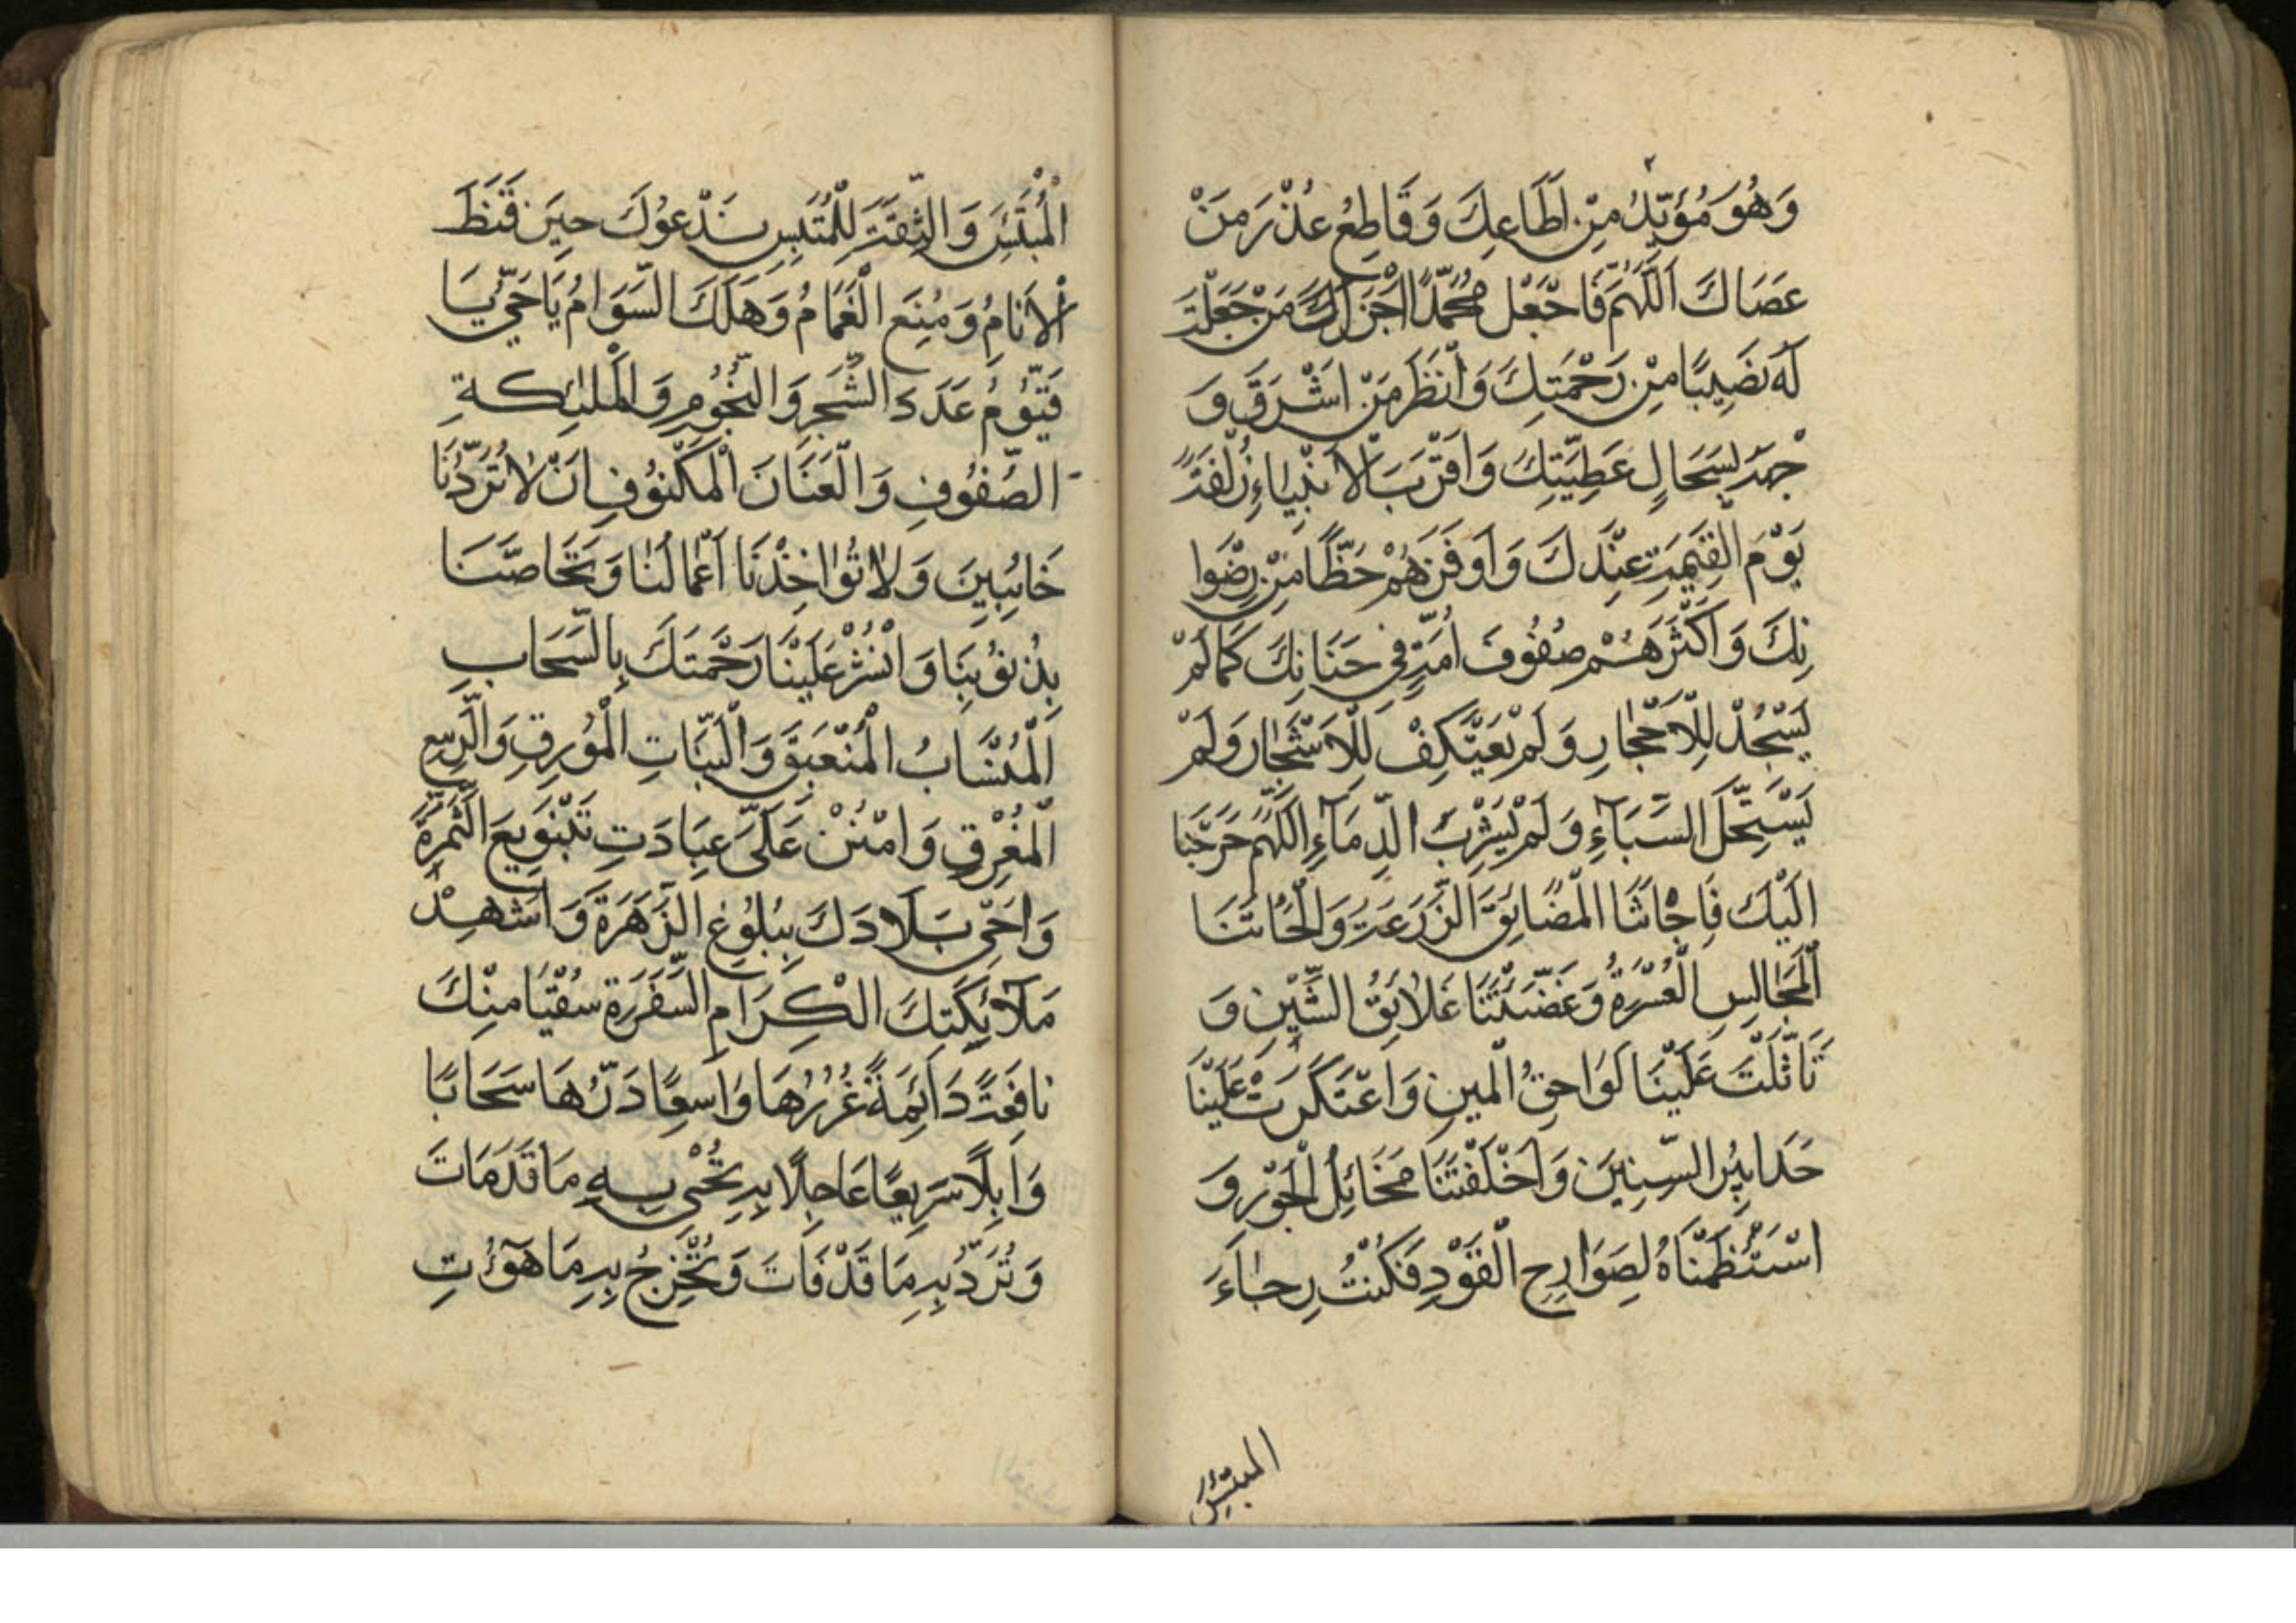 وَهُوَ مُؤَيِّدُ مِنْ اَطَاعِكَ وَقَاطِعُ عُذْرَ مَنْ
عَصَاكَ اَللّٰهُمَّ فَاحْبَعْل مُحَمَّدًا اَجْزَلَكَ مَنْ جَعَلْتَ
لَهُ نَصِيبًا مِنْ رَحْمَتِكَ وَاَنْظَرَ مَنْ اَشْرَقَ وَ
جْهَهُ لِسَحَالِ عَطِيَّتِكَ وَاَقْرَبَ الْاَنْبِيَاءِ زُلْفَةً
يَوْمَ الْقِيٰمَةِ عِنْدِكَ وَاَوفَرَهُمْ حَظًّا مِنْ رِضْوَا
نِكَ وَاَكْثَرَهُمْ صُفُوفَ اُمَّةٍ فِي جَنَانِكَ كَمَا لَمْ
يَسْجُدْ لِلْاَحْجَارِ وَلَمْ يَعْتَكِفْ لِلْاَشْجَارِ وَلَمْ
يَسْتَحِلَّ السَّبَآءِ وَلَمْ يَشْرِبُ الدِّمَآءِ اَللّٰهُمَّ خَرَجْنَا
اِلَيْكَ فَاجَاتْنَا الْمَضَائِقُ الزَّرَعَرَةُ وَالْحَاتَنَا
الْمَجَالِسِ الْعُسْرَةُ وَعَضَّتْنَا عَلَائِقُ الشَّيْنِ وَ
تَاَثَّلَتْ عَلَيْنَا لَوَاحِقُ الْمِينِ وَاعْتَكَرَتْ عَلَيْنَا
حَدَابِيْرُ السِّنِينَ وَاَخْلَفَتْنَا مَخَائِلُ الْجَوْرِ وَ
اسْتَظْمَنَاهُ لِصَوَارِحِ الْقَوْدِ فَكُنْتُ رِجَاءَ
المبتئس
الْمُبْتَئِسَ وَالثِّقَةَ لِلْمُتَبِسِ نَدْعُوكَ حِينَ قَنَطَ
الْاَنَامُ وَمُنِعَ الْغَمَامُ وَهَلَكَ السَّوَامُ يَا حَيُّ يَا
قَيُّومُ عَدَدَ الشَّجَرِ وَالنُّجُومِ وَالْمَلٰئِكَةِ
الصُّفُوفِ وَالْعَنَانَ الْمَكْنُوفِ اَنْ لَا تُرَدِّنَا
خَائِبِينَ وَلَا تُؤَاخِذْنَا اَعْمَالَنَا وَتَحَاصَّنَا
بِذُنُوبِنَا وَانْشُرْ عَلَيْنَا رَحْمَتَكَ بِالسَّحَابِ
الْمُنْسَابُ الْمُنْعَبَقِ وَالنَّبَّاتِ الْمُورِقِ وَالرَّبِيعِ
الْمُغْرِقِ وَامْنُنْ عَلَىَّ عِبَادَتِ بَتَنْوِيعِ الثَّمَرَةُ
وَاَحْيِ بَلَادَكَ بِبُلُوغِ الزَّهَرَةَ وَاَشْهِدْ
مَلآئِكَتِكَ الْكِرَامِ السَّفَرَةِ سُقْيَا مِنْكَ
نَافِعَةً دَائِمَةً غُزْرُهَا وَاَسِعًا دَرُّهَا سَحَابًا
وَابِلًا سَرِيعًا عَاجِلًا بِهِ تُحْيِي بِهِ مَا قَدْ مَاتَ
وَتُرَدُّ بِهِ مَا قَدْ فَاتَ وَتُخْرِجُ بِهِ مَا هَوَٰٓاتِ